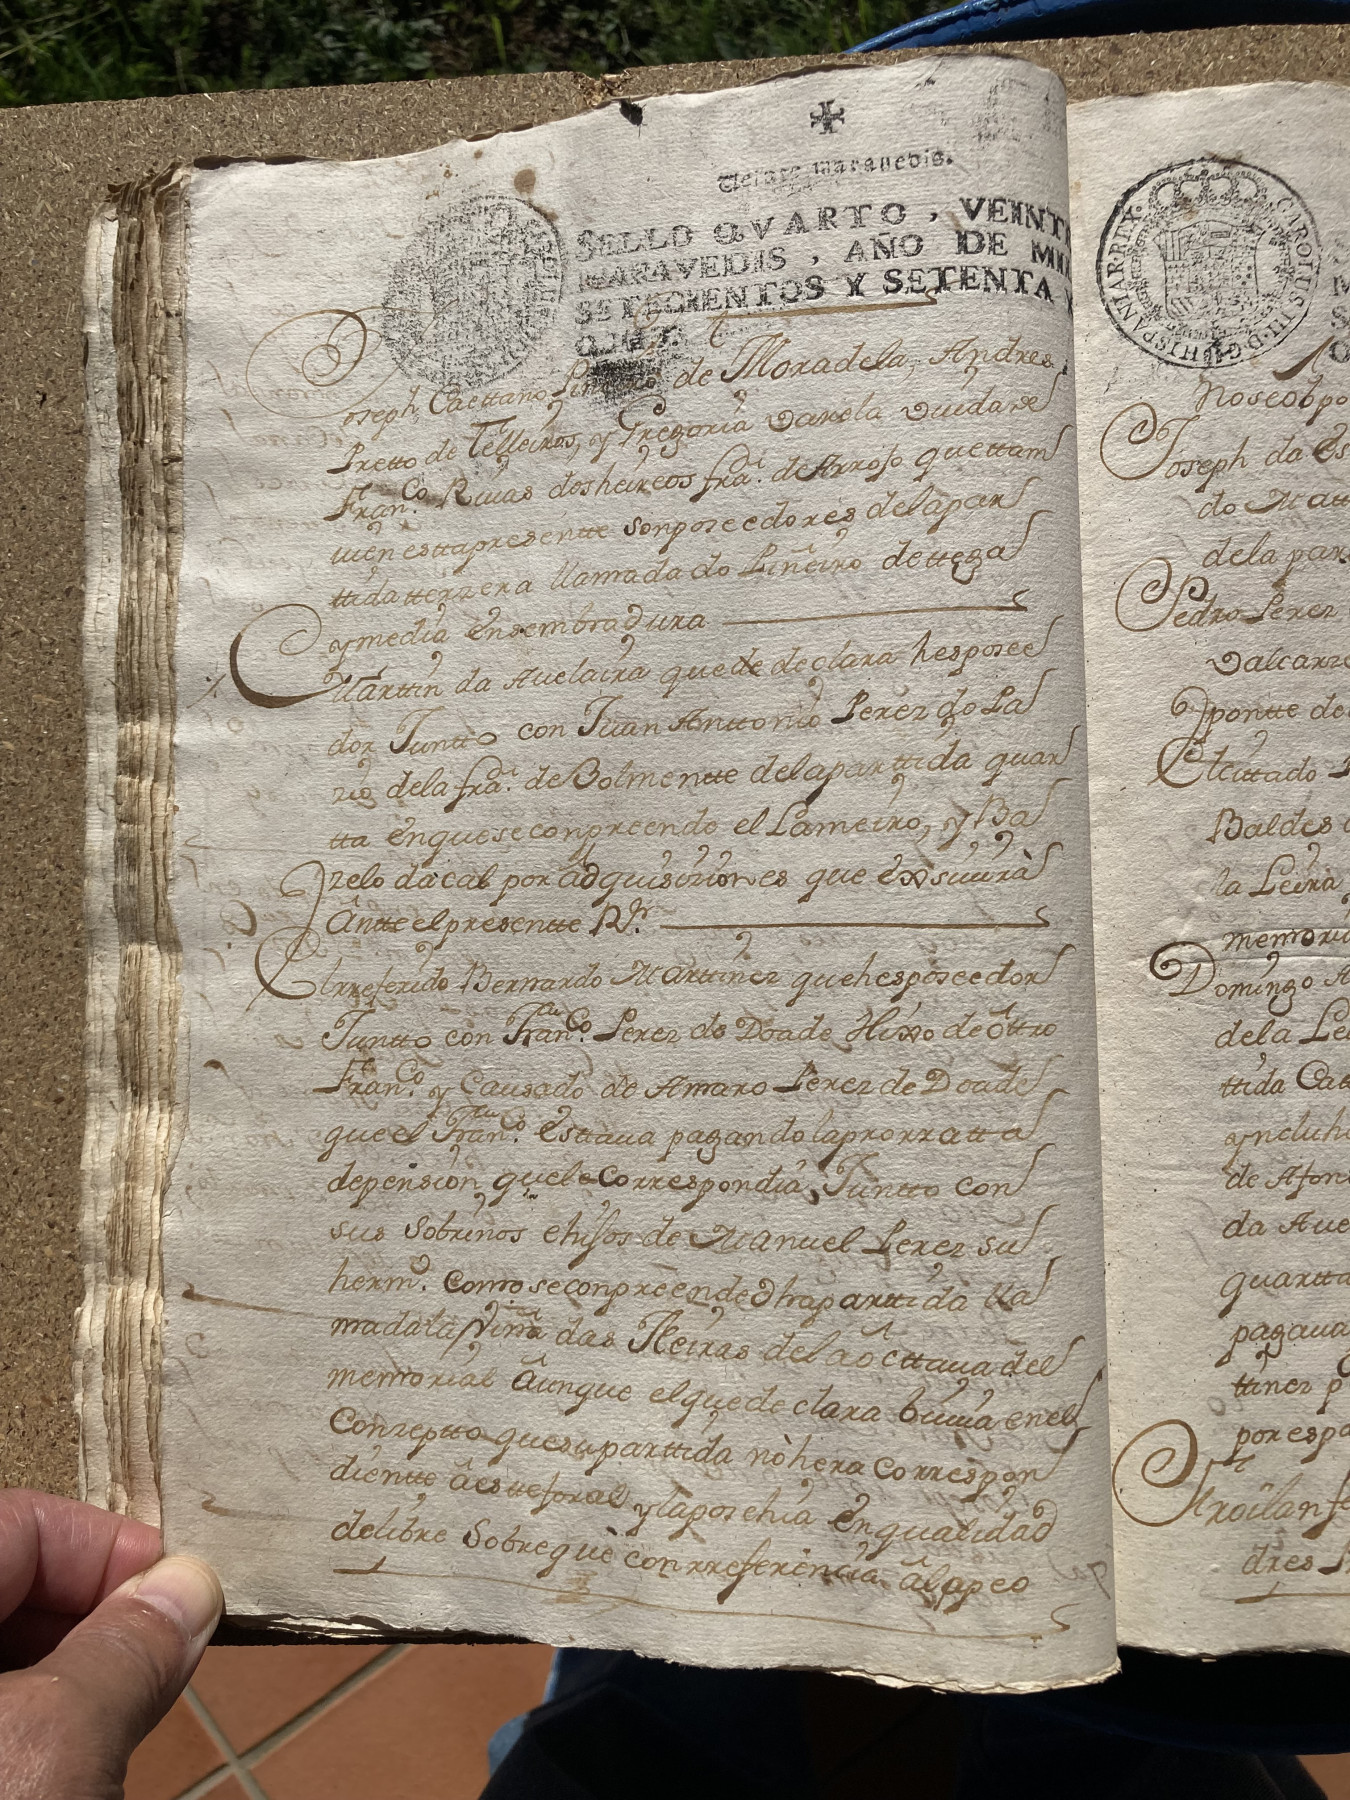 Veinte maravedis.
SELLO QVARTO, VEINTE
MARAVEDIS, AÑO DE MIL
SETECIENTOS Y SETENTA Y
OCHO.
Joseph Caettano Piñeiro de Moradela, Andres
Pretto de Telleiros, y Gregoria Varela viuda de
Franco. Rivas dos heireos fra. de Arrojo que ttam
vien estta presentte son poseedores de la par
ttida tterzera llamada do Piñeiro de ttega
y media en sembradura
Marttin da Avelaira que de declara hes posee
dor Juntto con Juan Anttonio Perez do La
rio de la fra. de Bolmentte de la parttida quar
tta en que se conpreendo el Lameiro, y Ba
rzelo dacal por adquisiziones que exsivirà
antte el presentte
El rreferido Bernardo Marttinez que hes poseedor
Juntto con Franco. Perez do Doade Hixo de ôttro
Franco. y Causado de Amaro Perez de Doade
que el Franco. esttava pagando la prorratta
de pension que le correspondia, Juntto con
sus Sobrinos e hijos de Manuel Perez su
hermo. como se conpreende dha parttida lla
mada la Viña das Fleiras de la ôcttava del
memorial aunque el que declara bivia en el
Conzeptto que su parttida nò hera correspon
dientte â estte foral y la posehia en qualidad
de libre Sobre què con rreferencia âl apeo
CAROLUS III. D. G. HISPANIAR. REX.
Joseph da
do
de la par
Pedro Perez
Valcarze
pontte de
El cittado
Baldes
la Leira
memoria
Domingo
de la Le
ttida
yncluh
de Afon
da Ave
quartta
pagava
ttinez p
por espa
Froilan
dres